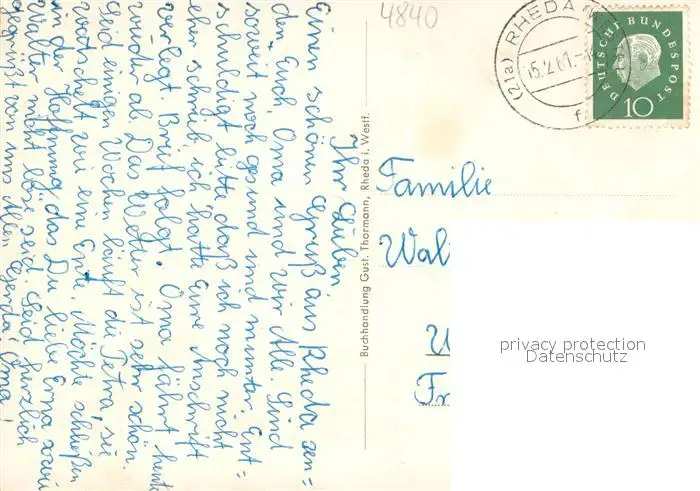 4840
(21a) RHEDA
15.2.61.
DEUTSCHE BUNDESPOST
10
Ihr Lieben
Einen schönen Gruß aus Rheda sen=
den Euch, Oma und wir Alle. Sind
soweit noch gesund und munter. Ent=
schuldigt bitte, daß ich noch nicht
eher schrieb, ich hatte Eure Anschrift
verlegt. Brief folgt. Oma fährt heute
wieder ab. Das Wetter ist sehr schön.
Seid einigen Wochen läuft die Petra, sie
watschelt wie eine Ente. Möchte schließen
in der Hoffnung, das Du liebe Erna sowie
Walter nicht böse seid. Seid herzlich
gegrüßt von uns Allen. Gerda Oma
Buchhandlung Gust. Thormann, Rheda i. Westf.
Familie
Wal
privacy protection
Datenschutz